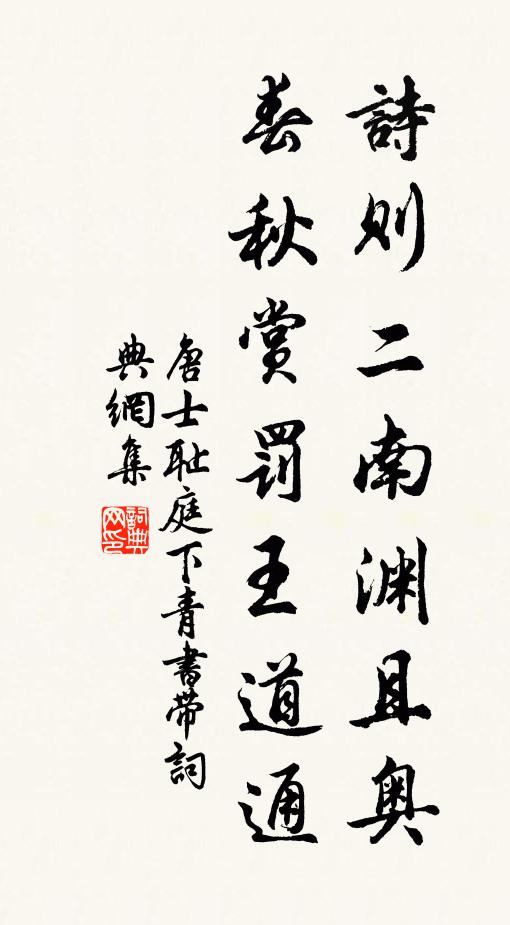 詩則二南渊且奥
春秋賞罰王道通
唐士耻庭下青書帶詞
典網集
詞典
网印